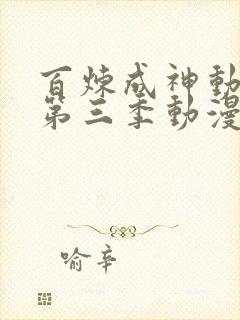 百炼成神動
第三季動漫
喻辛